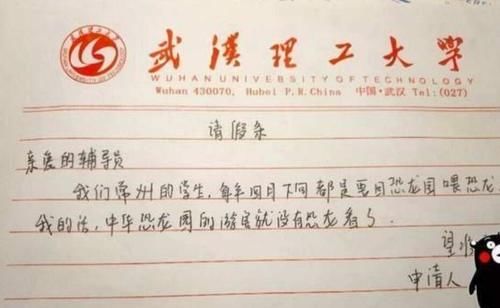 武汉理工大学
武漢理工大学
WUHAN UNIVERSITY OF TECHNOLOGY
Wuhan 430070, Hubei P.R.China 中国·武汉 Tel:(027)
请假条
亲爱的辅导员
我们常州的学生,每年四月下旬都是要回恐龙园喂恐龙
我的话,中华恐龙园的游客就没有恐龙看了.
望
申请人